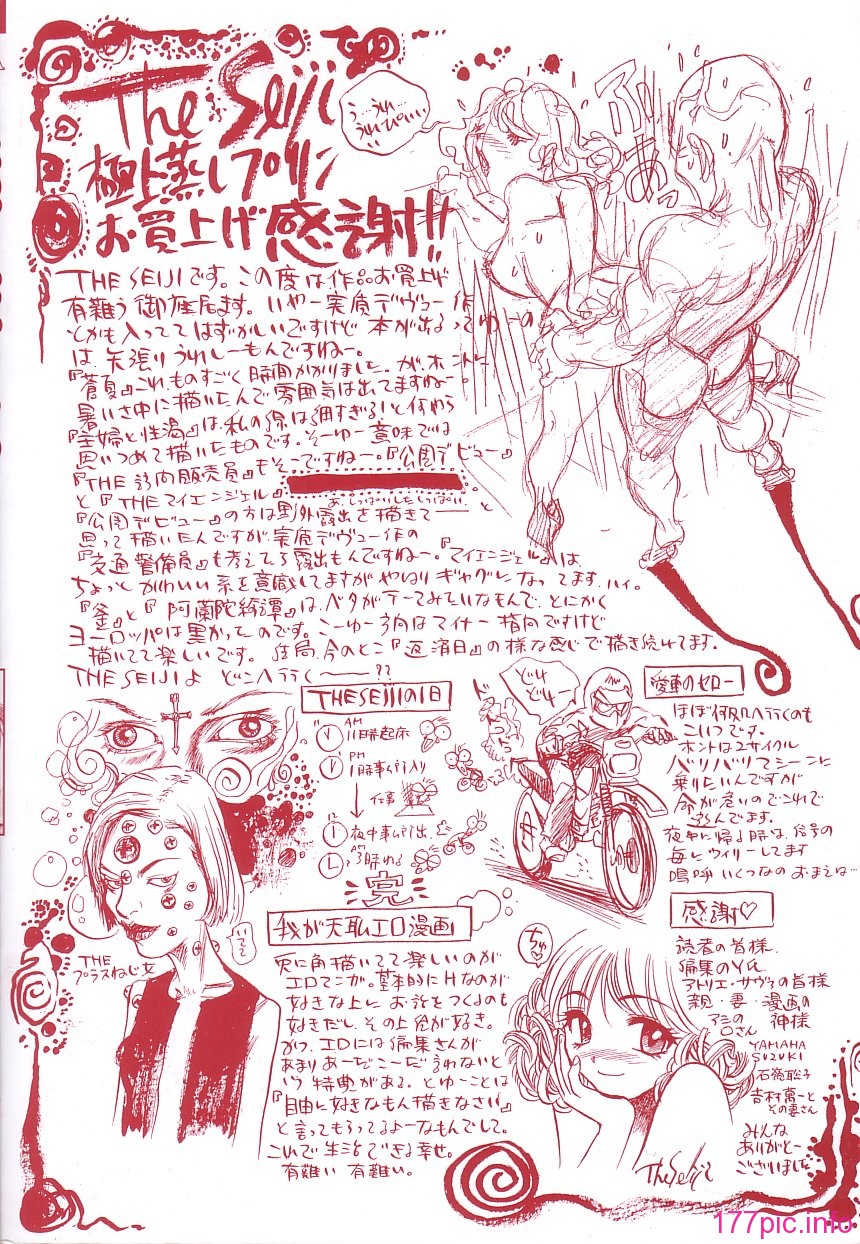 The Seiji
極上蒸しプリン
お買上げ感謝!!
う…うれ…
うれぴぃぃ
ふ
あ
あっ
THE SEIJIです。この度は作品お買上げ
有難う御座居ます。いやー実底デヴュー作
とかも入っててはずかしいですけど本が出るってゆーの
は矢張りうれしーもんですねー。
『蒼夏』これものすごく時間かかりました。が、ホントに
暑いさ中に描いたんで雰囲気は出てますねー。
『主婦と性渇』は、私の線は細すぎる!と何やら
思いつめて描いたものです。そーゆー意味では
『THE 訪問販売員』もそーですねー。『公園デビュー』
と『THEマイエンジェル』
あ、しっぱいしたしっぱい
『公園デビュー』の方は野外露出を描きてーーと
思って描いたんですが、実底デヴュー作の
『交通警備員』も考えてみりゃ露出もんですねー。『マイエンジェル』は
ちょっとかわいい系を意識してますがやはりギャグになってます、ハイ。
『釜』と『阿蘭陀綺譚』は、ベタがテーマみたいなもんで、とにかく
ヨーロッパは黒かったのです。こーゆー方向はマイナー指向ですけど
描いてて楽しいです。結局、今のとこ『返済日』の様な感じで描き続けてます。
THE SEIJIよ どこへ行くーー??
THE SEIJIの1日
AM
11時起床
PM
1時事ム所入り
仕事
夜中事ム所出
AM
3時ねる
完
愛車のセロー
ほぼ何処へ行くのも
こいつです。
ホントは2サイクル
バリバリマシーンに
乗りたいんですが
命が危いのでこれで
遊んでます。
夜中に帰る時は、信号の
毎にウィリーしてます
嗚呼 いくつなの おまえは…
どれ
どれー
ドッ
THE
プラスねじ女
いてて
我が天恥エロ漫画
兎に角描いてて楽しいのが
エロマンガ。基本的にHなのが
好きな上に、お話をつくるのも
好きだし、その上絵が好き。
かつ、エロには編集さんが
あまりあーだこーだ言わないと
いう特典がある。とゆーことは
『自由に好きなもん描きなさい』
と言ってもらってるよーなもんでして。
これで生活できる幸せ。
有難い 有難い。
感謝♡
ちゅ♡
読者の皆様
編集のY氏
アトリエ・サヴァの皆様
親・妻・漫画の神様
アシの
口さん
YAMAHA
SUZUKI
石嶺聡子
吉村萬一と
その妻さん
みんな
ありがとー
ございました
The Seiji
177pic.info